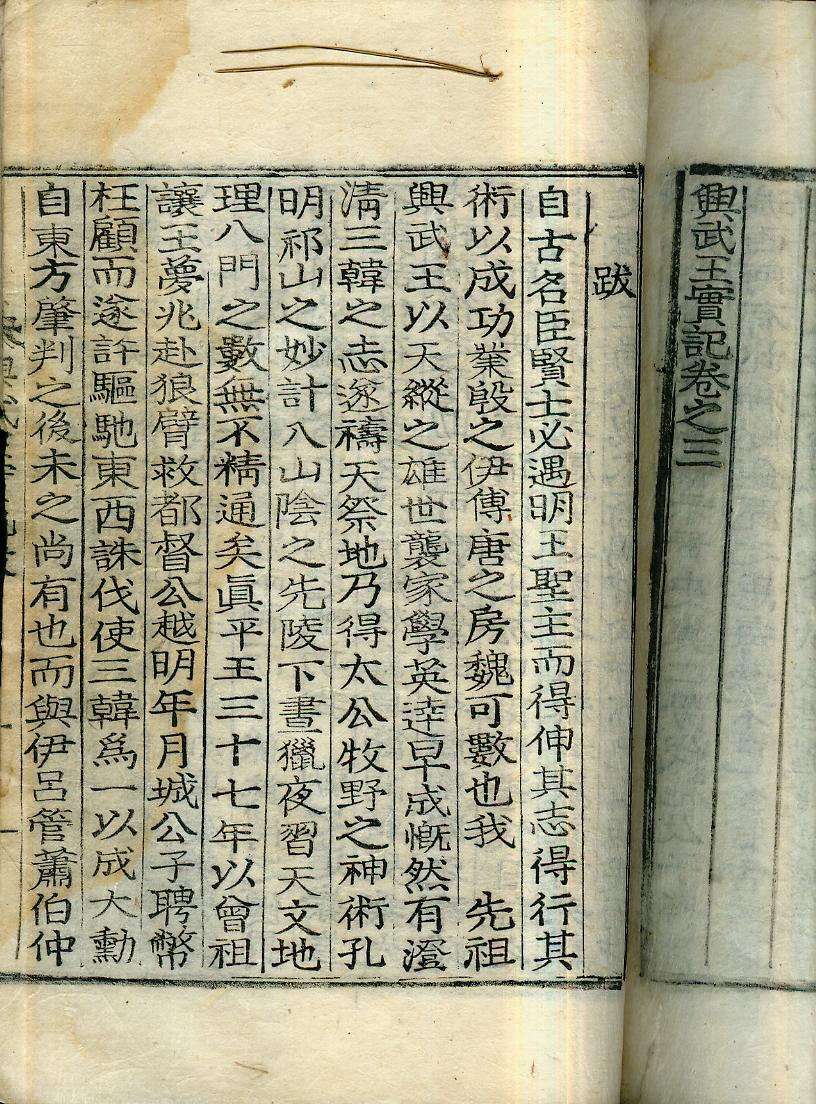 興武王實記卷之三
跋
自古名臣賢士必遇明王聖主而得伸其志得行其
術以成功業殷之伊傅唐之房魏可數也我 先祖
興武王以天縱之雄世襲家學英達早成慨然有澄
淸三韓之志遂禱天祭地乃得太公牧野之神術孔
明祁山之妙計入山陰之先陵下晝獵夜習天文地
理八門之數無不精通矣眞平王三十七年以曾祖
讓王夢兆赴狼臂救都督公越明年月城公子聘幣
枉顧而遂許驅馳東西誅伐使三韓爲一以成大勳
自東方肇判之後未之尙有也而與伊呂管蕭伯仲